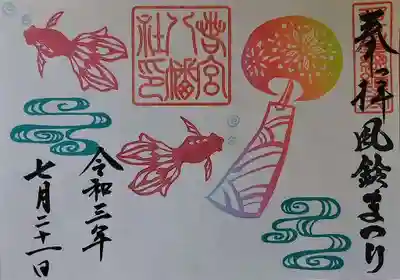 奉拝 風鈴まつり
若宮
八幡
社印
令和三年
七月二十一日